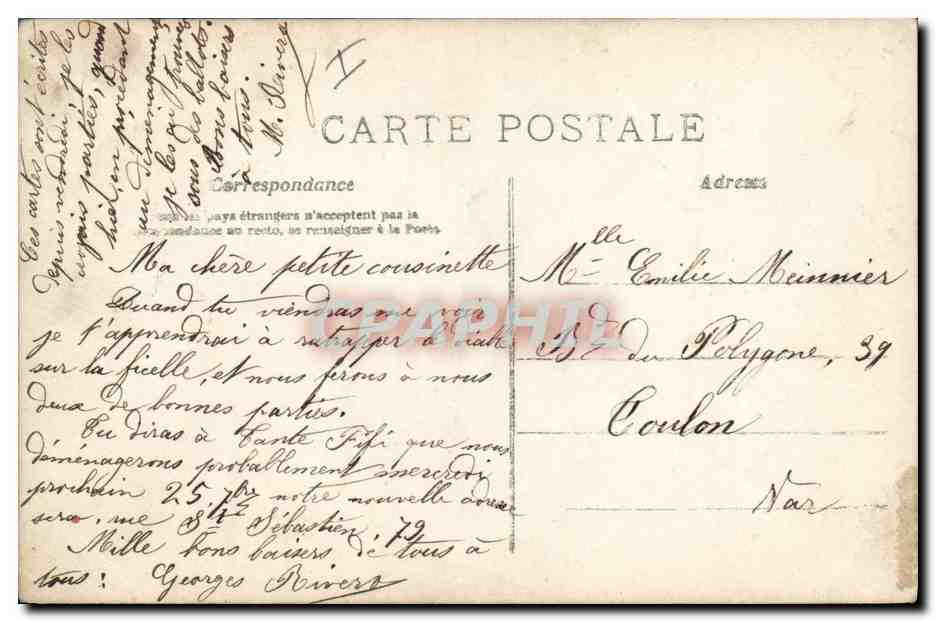 Ces cartes sont écrites
depuis vendredi, je les
croyais parties, quand
hier, en préparant
un déménagement
je les ai trouvées
sous des ballots
Bons baisers
à tous.
M. Rivers
CARTE POSTALE
Correspondance
Adresse
pays étrangers n'acceptent pas la
au recto, se renseigner à la Poste
Ma chère petite cousinette
Quand tu viendras me voir
je t'apprendrai à rattrapper le diable
sur la ficelle, et nous ferons à nous
deux de bonnes parties.
Tu diras à Tante Fifi que nous
déménagerons probablement mercredi
prochain 25 7bre notre nouvelle adresse
sera, rue St Sébastien 79
Mille bons baisers de tous à
tous! Georges Rivers
Mlle Emilie Meinnier
Bd du Polygone, 39
Toulon
Var
CPAPHIL